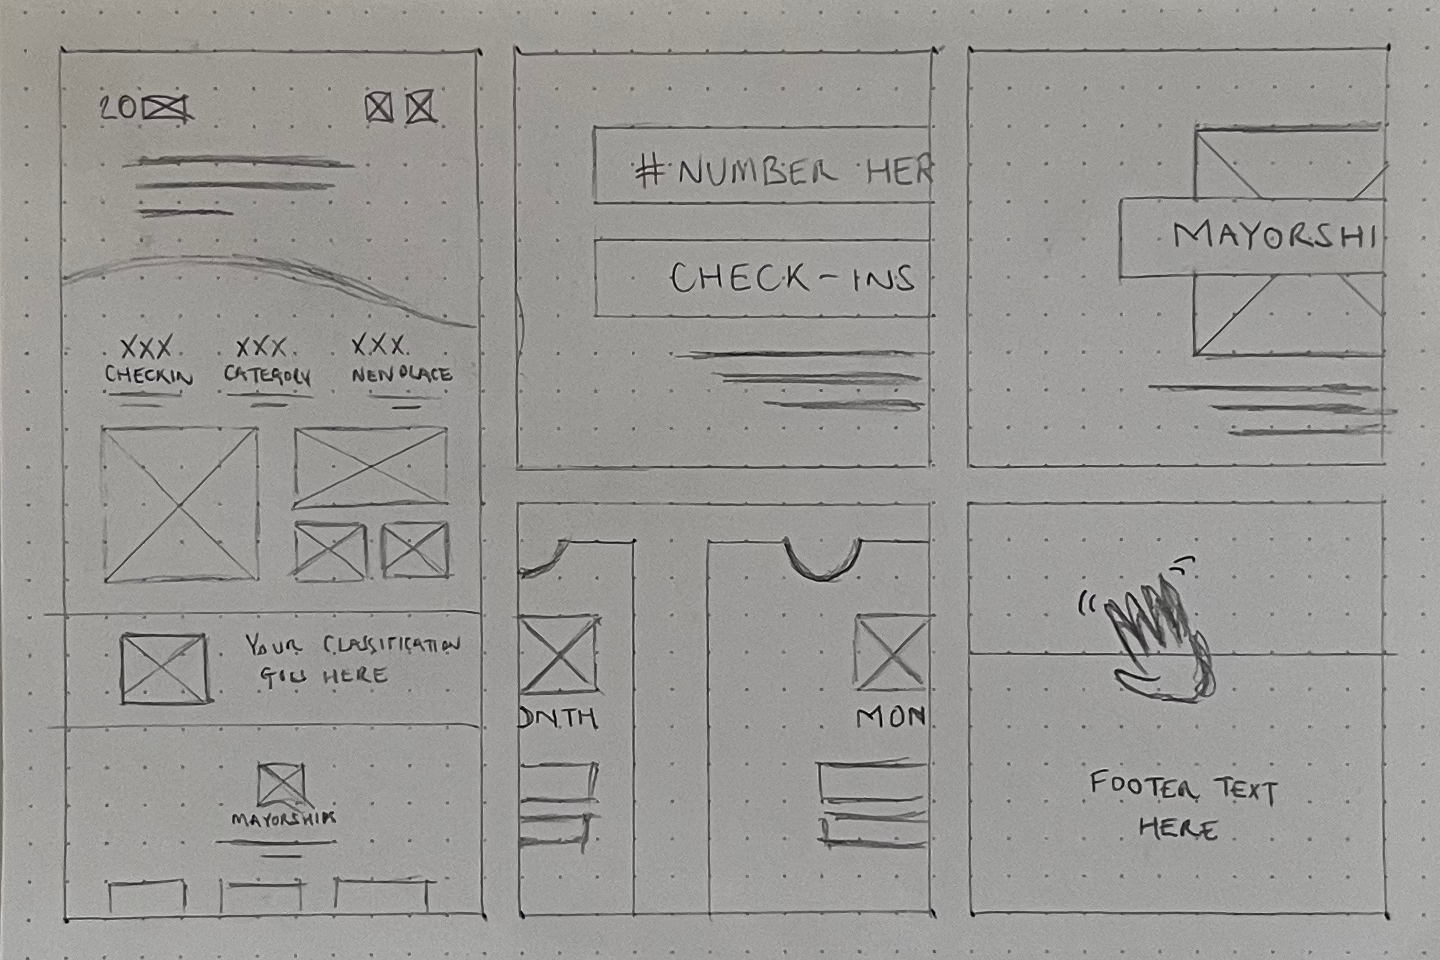 20
XXX. XXX. XXX.
CHECKIN CATEGORY NEW PLACE
YOUR CLASSIFICATION
GOES HERE
MAYORSHIPS
# NUMBER HER
CHECK-INS
MAYORSHI
ONTH MON
FOOTER TEXT
HERE